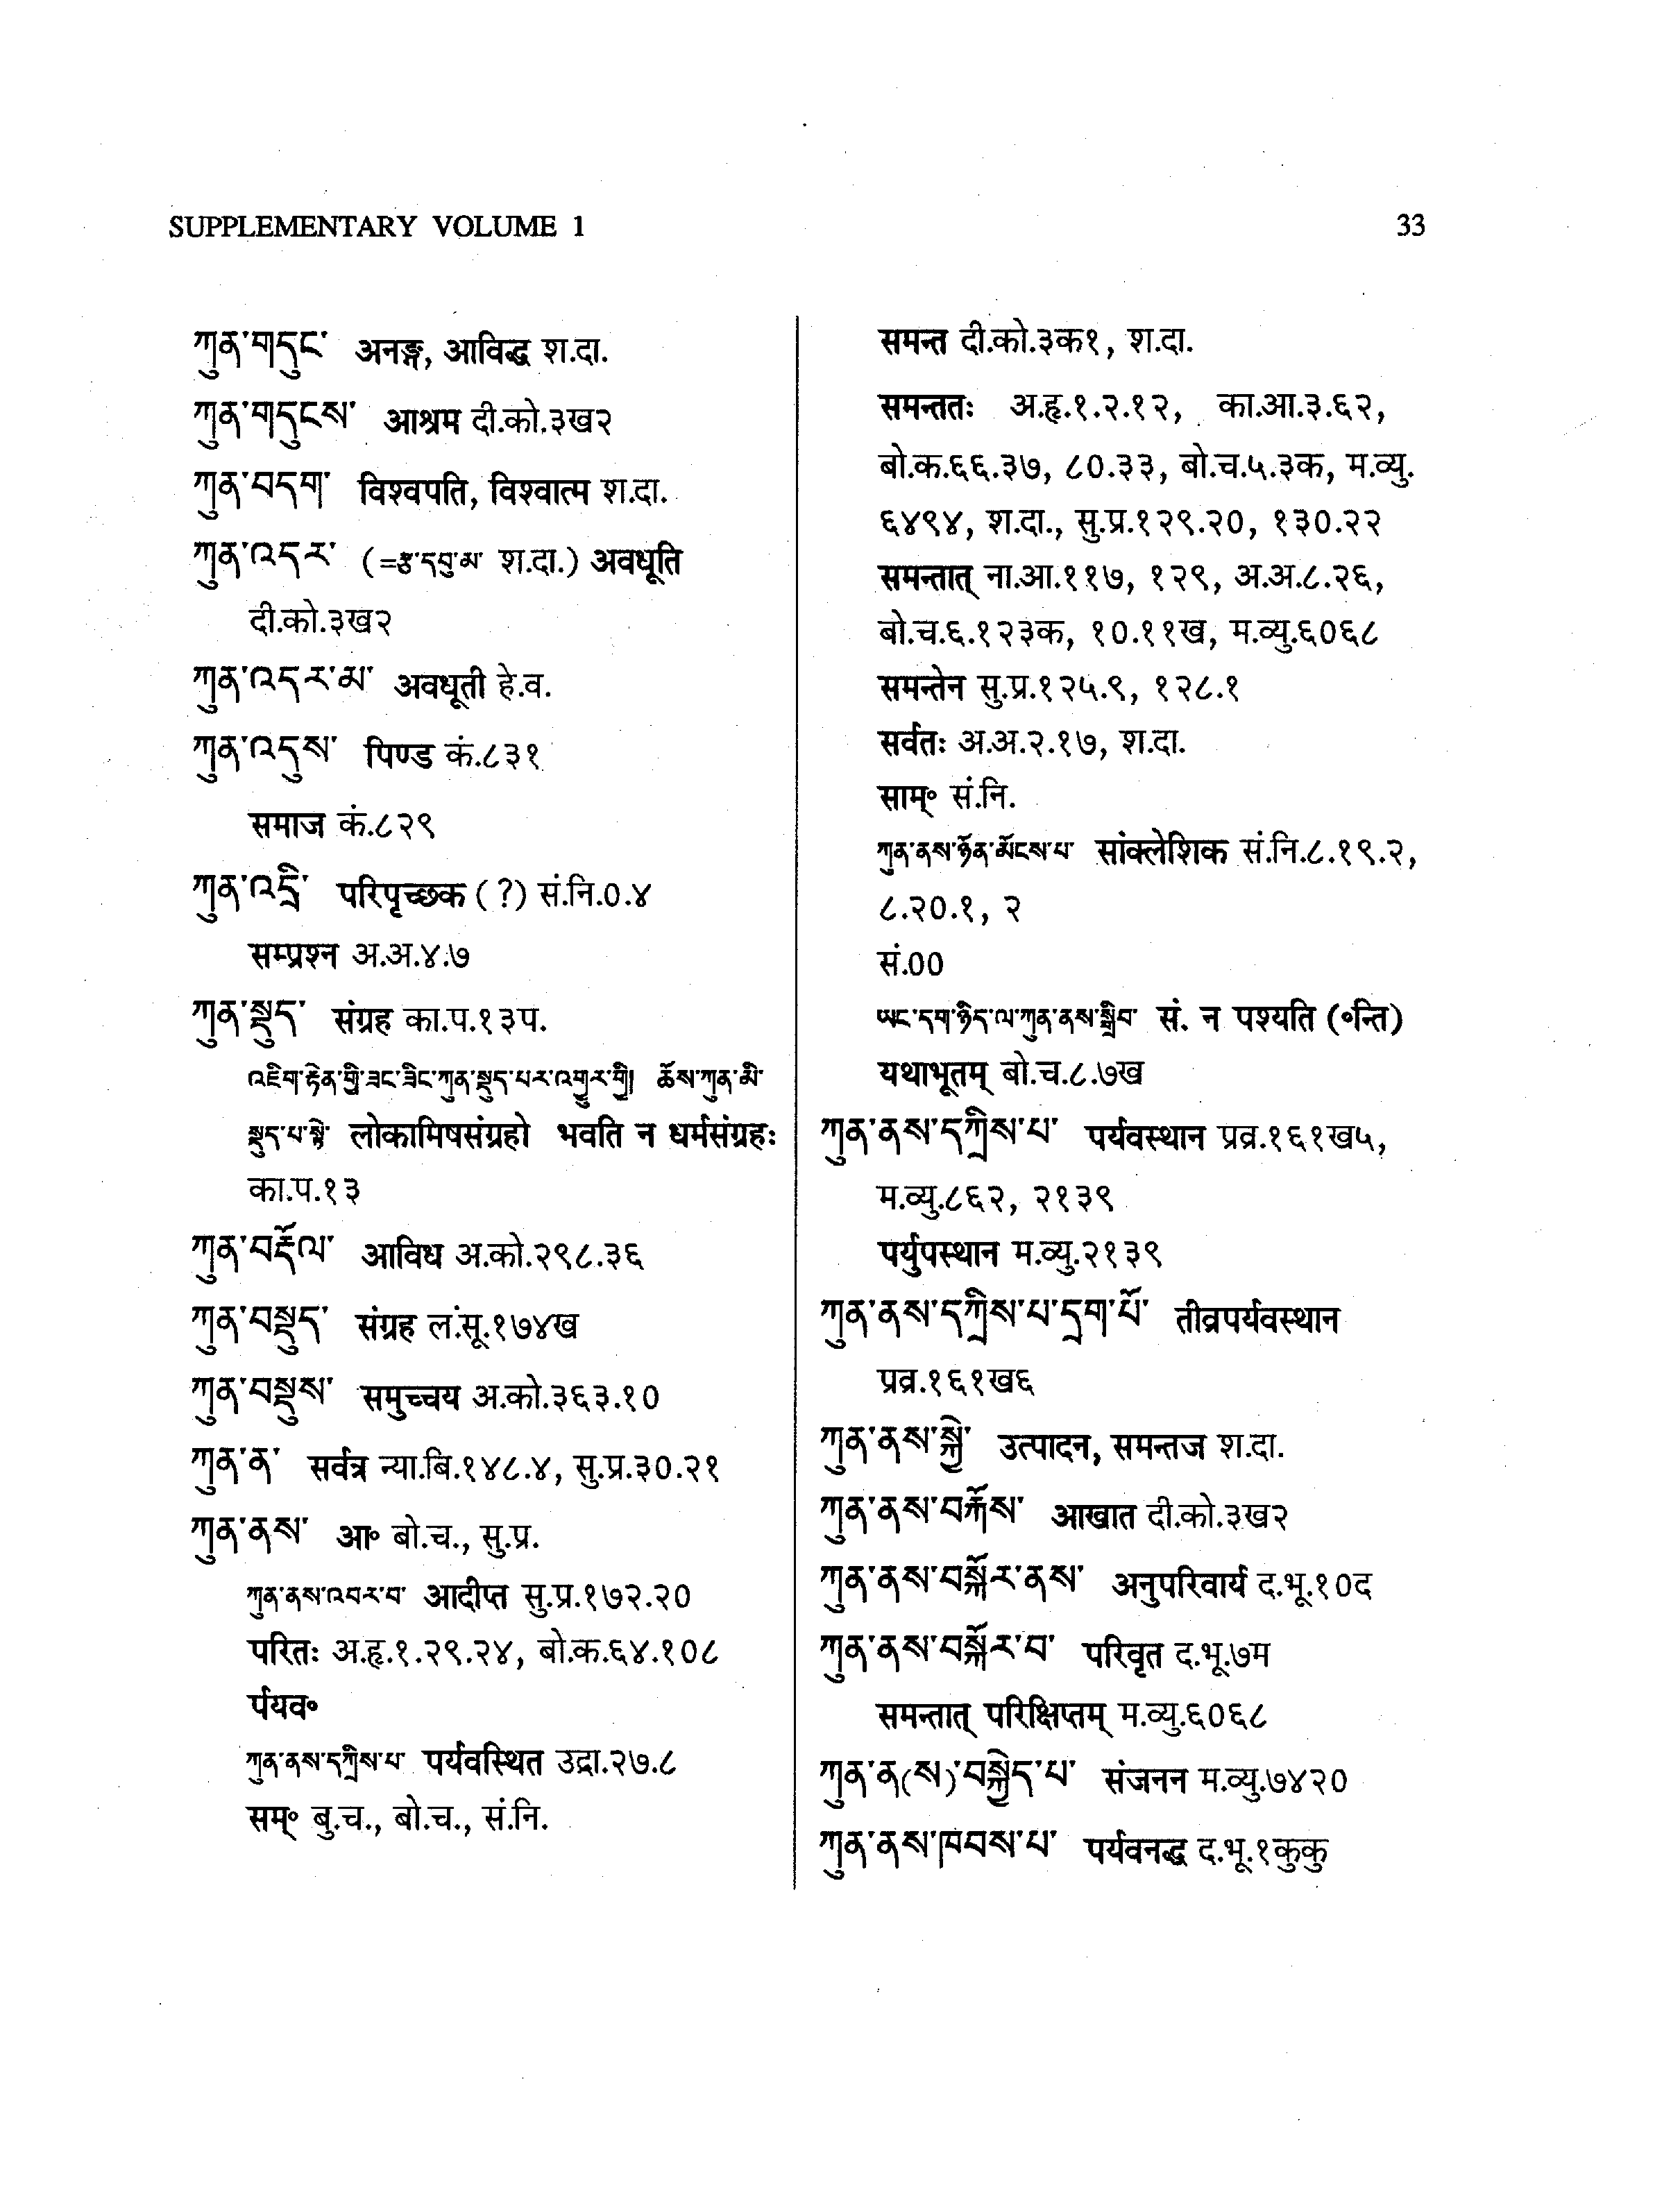 SUPPLEMENTARY VOLUME 1
33
ཀུན་གདུང་ अनङ्ग, आविद्ध श.दा.
ཀུན་གདུངས་ आश्रम दी.को.३ख२
ཀུན་བདག་ विश्वपति, विश्वात्म श.दा.
ཀུན་འདར་ (=རྩ་དབུ་མ་ श.दा.) अवधूति
दी.को.३ख२
ཀུན་འདར་མ་ अवधूती हे.व.
ཀུན་འདུས་ पिण्ड कं.८३१
समाज कं.८२९
ཀུན་འདྲི་ परिपृच्छक (?) सं.नि.0.४
सम्प्रश्न अ.अ.४.७
ཀུན་སྡུད་ संग्रह का.प.१३प.
འཇིག་རྟེན་གྱི་ཟང་ཟིང་ཀུན་སྡུད་པར་འགྱུར་གྱི། ཆོས་ཀུན་མི་
སྡུད་པ་སྟེ་ लोकामिषसंग्रहो भवति न धर्मसंग्रहः
का.प.१३
ཀུན་བརྡོལ་ आविध अ.को.२९८.३६
ཀུན་བསྡུད་ संग्रह लं.सू.१७४ख
ཀུན་བསྡུས་ समुच्चय अ.को.३६३.१0
ཀུན་ན་ सर्वत्र न्या.बि.१४८.४, सु.प्र.३0.२१
ཀུན་ནས་ आ॰ बो.च., सु.प्र.
ཀུན་ནས་འབར་བ་ आदीप्त सु.प्र.१७२.२0
परितः अ.हृ.१.२९.२४, बो.क.६४.१0८
र्पयव॰
ཀུན་ནས་དཀྲིས་པ་ पर्यवस्थित उद्रा.२७.८
सम्॰ बु.च., बो.च., सं.नि.
समन्त दी.को.३क१, श.दा.
समन्ततः अ.हृ.१.२.१२, का.आ.३.६२,
बो.क.६६.३७, ८0.३३, बो.च.५.३क, म.व्यु.
६४९४, श.दा., सु.प्र.१२९.२0, १३0.२२
समन्तात् ना.आ.११७, १२९, अ.अ.८.२६,
बो.च.६.१२३क, १0.११ख, म.व्यु.६0६८
समन्तेन सु.प्र.१२५.९, १२८.१
सर्वतः अ.अ.२.१७, श.दा.
साम्॰ सं.नि.
ཀུན་ནས་ཉོན་མོངས་པ་ सांक्लेशिक सं.नि.८.१९.२,
८.२0.१, २
सं.00
ཡང་དག་ཉིད་ལ་ཀུན་ནས་སྒྲིབ་ सं. न पश्यति (॰न्ति)
यथाभूतम् बो.च.८.७ख
ཀུན་ནས་དཀྲིས་པ་ पर्यवस्थान प्रव्र.१६१ख५,
म.व्यु.८६२, २१३९
पर्युपस्थान म.व्यु.२१३९
ཀུན་ནས་དཀྲིས་པ་དྲག་པོ་ तीव्रपर्यवस्थान
प्रव्र.१६१ख६
ཀུན་ནས་སྐྱེ་ उत्पादन, समन्तज श.दा.
ཀུན་ནས་བརྐོས་ आखात दी.को.३ख२
ཀུན་ནས་བསྐོར་ནས་ अनुपरिवार्य द.भू.१0द
ཀུན་ནས་བསྐོར་བ་ परिवृत द.भू.७म
समन्तात् परिक्षिप्तम् म.व्यु.६0६८
ཀུན་ན(ས)་བསྐྱེད་པ་ संजनन म.व्यु.७४२0
ཀུན་ནས་ཁེབས་པ་ पर्यवनद्ध द.भू.१कुकु